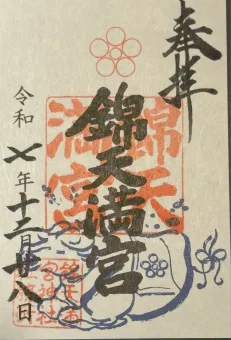 奉拝
錦天満宮
錦天満宮
令和七年十二月廿八日